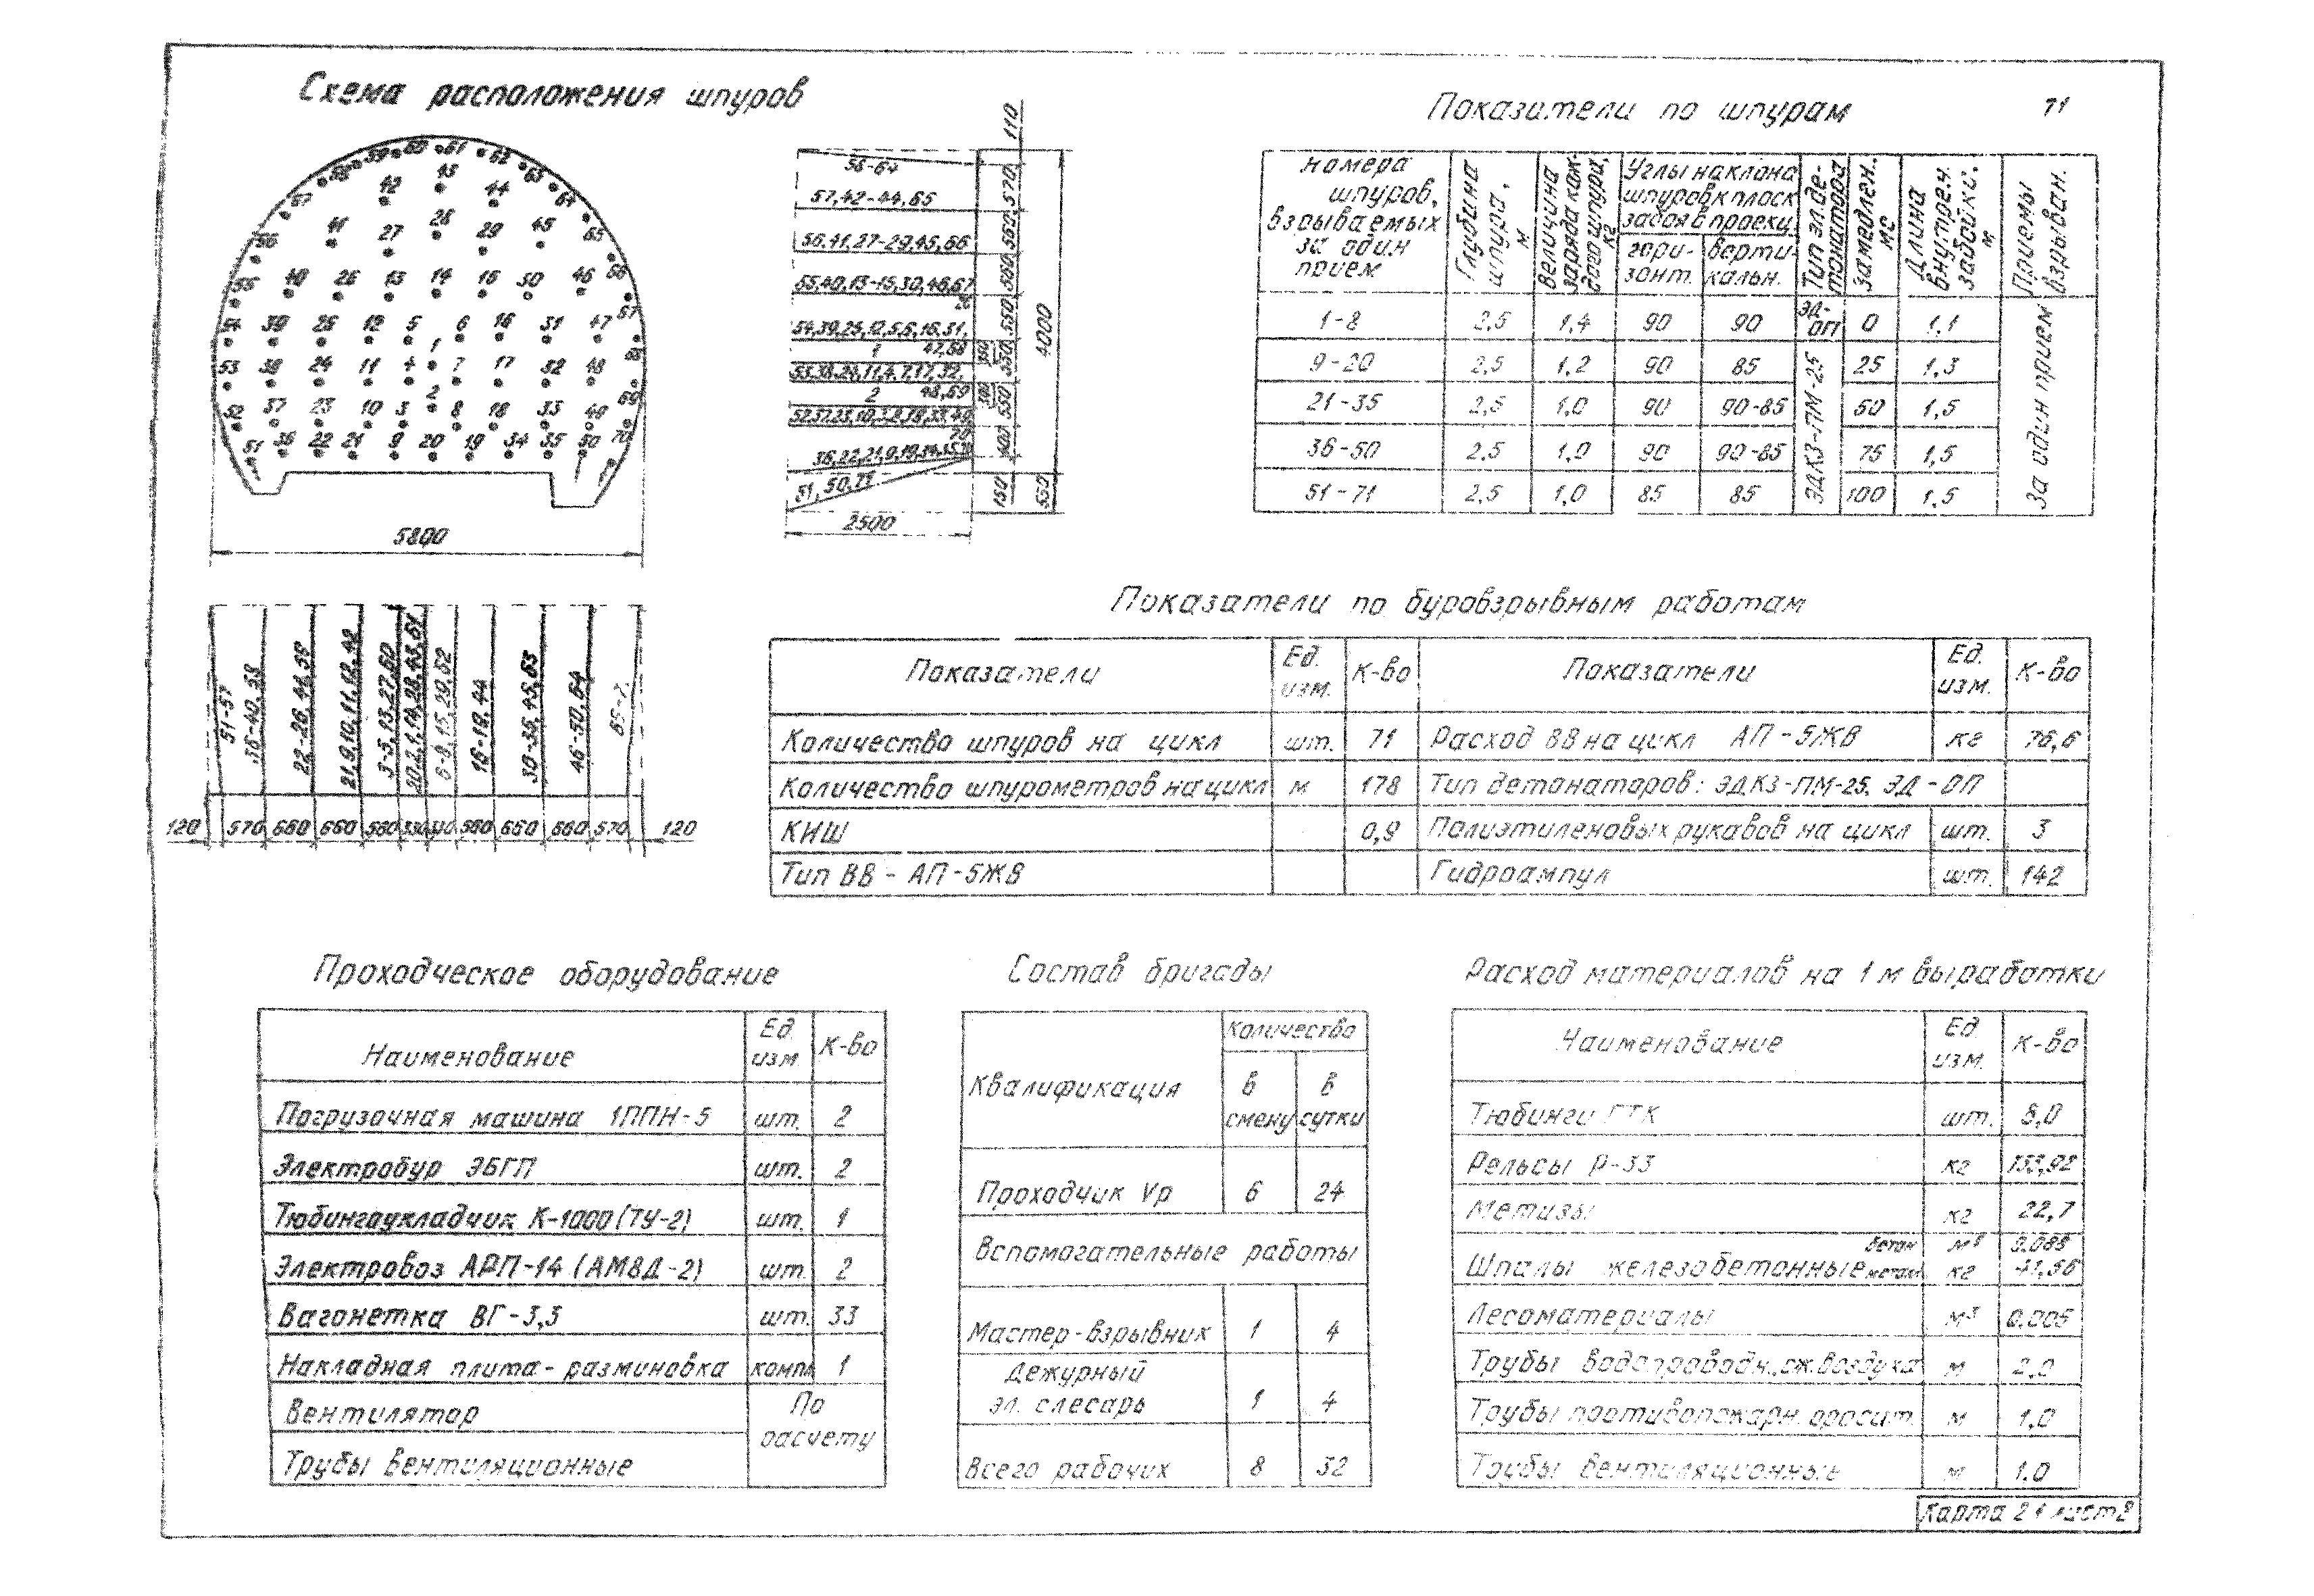 71
Схема расположения шпуров
59 60 61 62
58 43 63
42 44 64
57
41 28 45
27 29 65
56
40 26 13 14 15 30 46 66
55
54 39 25 12 5 6 16 31 47 67
1
53 38 24 11 4 7 17 32 48 68
2
52 37 23 10 3 8 18 33 49 69
51 36 22 21 9 20 19 34 35 50 70
5800
58-64
57,42-44,65
56,41,27-29,45,66
55,40,13-15,30,46,67
26
54,39,25,12,5,6,16,31,
1 47,68
53,38,24,11,4,7,17,32,
2 48,69
52,37,23,10,3,8,18,33,49
70
36,22,21,9,19,34,35,20
51,50,71
2500
110
570
560
560
550
550
550
400
150
4000
550
51-57
36-40,58
22-26,41,59
21,9,10,11,12,42
3-5,13,27,60
20,2,1,14,28,43,61
6-8,15,29,62
16-19,44
30-35,45,63
46-50,64
120 570 660 660 560 330 330 560 660 660 570 120
Показатели по шпурам
номера шпуров, взрываемых за один прием
Глубина шпура, м
Величина заряда каждого шпура, кг
Углы наклона шпуров к плоск забоя в проекц
гори-зонт.
верти-кальн.
Тип эл.де-тонатора
Замедлен., мс
Длина внутреч. забойки, м
Приемы взрыван.
1-8 2,5 1,4 90 90 ЭД-ОП 0 1,1
9-20 2,5 1,2 90 85 25 1,3
21-35 2,5 1,0 90 90-85 50 1,5
36-50 2,5 1,0 90 90-85 75 1,5
51-71 2,5 1,0 85 85 100 1,5
ЭДКЗ-ПМ-25
За один прием
Показатели по буровзрывным работам
Показатели Ед. изм. К-во Показатели Ед. изм. К-во
Количество шпуров на цикл шт. 71 Расход ВВ на цикл АП-5ЖВ кг 76,6
Количество шпурометров на цикл м 178 Тип детонаторов: ЭДКЗ-ПМ-25, ЭД-ОП
КИШ 0,9 Полиэтиленовых рукавов на цикл шт. 3
Тип ВВ - АП-5ЖВ Гидроампул шт. 142
Проходческое оборудование
Наименование Ед. изм. К-во
Погрузочная машина 1ППН-5 шт. 2
Электробур ЭБГП шт. 2
Тюбингоукладчик К-1000 (ТУ-2) шт. 1
Электровоз АРП-14 (АМ8Д-2) шт. 2
Вагонетка ВГ-3,3 шт. 33
Накладная плита-разминовка компл 1
Вентилятор По
Трубы вентиляционные расчету
Состав бригады
Квалификация Количество
в смену в сутки
Проходчик Vр 6 24
Вспомогательные работы
Мастер-взрывник 1 4
Дежурный
эл. слесарь 1 4
Всего рабочих 8 32
Расход материалов на 1 м выработки
Наименование Ед изм. К-во
Тюбинги ГТК шт. 8,0
Рельсы Р-33 кг 133,92
Метизы кг 22,7
бетон м³ 0.088
Шпалы железобетонные метал. кг 41,56
Лесоматериалы м³ 0,005
Трубы водопроводн., сж.воздуха м 2,0
Трубы противопожарн. оросит. м 1,0
Трубы вентиляционные м 1.0
Карта 21 лист 2